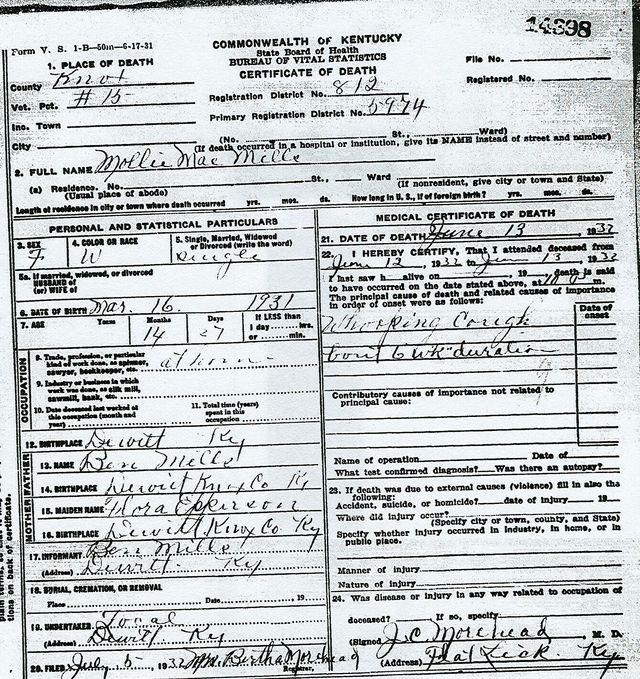 14398
Form V. S. 1-B—50m—6-17-31
COMMONWEALTH OF KENTUCKY
State Board of Health
BUREAU OF VITAL STATISTICS
CERTIFICATE OF DEATH
File No.
Registered No.
1. PLACE OF DEATH
County Knox
Vot. Pct. #15
Inc. Town
City
Registration District No. 812
Primary Registration District No. 5974
(No. St., Ward)
(If death occurred in a hospital or institution, give its NAME instead of street and number)
2. FULL NAME Mollie Mae Mills
(a) Residence. No. St., Ward
(Usual place of abode) (If nonresident, give city or town and State)
Length of residence in city or town where death occurred yrs. mos. ds. How long in U. S., if of foreign birth? yrs. mos. ds.
PERSONAL AND STATISTICAL PARTICULARS
3. SEX F
4. COLOR OR RACE W
5. Single, Married, Widowed or Divorced (write the word) Single
5a. If married, widowed, or divorced
HUSBAND of
(or) WIFE of
6. DATE OF BIRTH Mar. 16 1931
7. AGE Years Months 14 Days 27 If LESS than 1 day hrs. or min.
OCCUPATION
8. Trade, profession, or particular kind of work done, as spinner, sawyer, bookkeeper, etc. at home
9. Industry or business in which work was done, as silk mill, sawmill, bank, etc.
10. Date deceased last worked at this occupation (month and year)
11. Total time (years) spent in this occupation
12. BIRTHPLACE Dewitt Ky
FATHER
13. NAME Ben Mills
14. BIRTHPLACE Dewitt Knox Co Ky
MOTHER
15. MAIDEN NAME Flora Epperson
16. BIRTHPLACE Dewitt Knox Co Ky
17. INFORMANT Ben Mills
(Address) Dewitt Ky
18. BURIAL, CREMATION, OR REMOVAL
Place Date , 19
19. UNDERTAKER Local
Dewitt Ky
20. FILED July 5- 1932 Mrs. Bertha Morehead
Registrar.
MEDICAL CERTIFICATE OF DEATH
21. DATE OF DEATH June 13 , 1932
22. I HEREBY CERTIFY, That I attended deceased from
June 12, 1932 to June 13, 1932
I last saw h alive on , 19 , death is said
to have occurred on the date stated above, at m.
The principal cause of death and related causes of importance
in order of onset were as follows:
Date of onset
Whooping Cough
6 wk duration
Contributory causes of importance not related to
principal cause:
Name of operation Date of
What test confirmed diagnosis? Was there an autopsy?
23. If death was due to external causes (violence) fill in also the
following:
Accident, suicide, or homicide? date of injury 19
Where did injury occur?
(Specify city or town, county, and State)
Specify whether injury occurred in industry, in home, or in
public place.
Manner of injury
Nature of injury
24. Was disease or injury in any way related to occupation of
deceased? If so, specify
(Signed J. C. Morehead M. D.
(Address) Flat Lick Ky
tions on back of certificate.